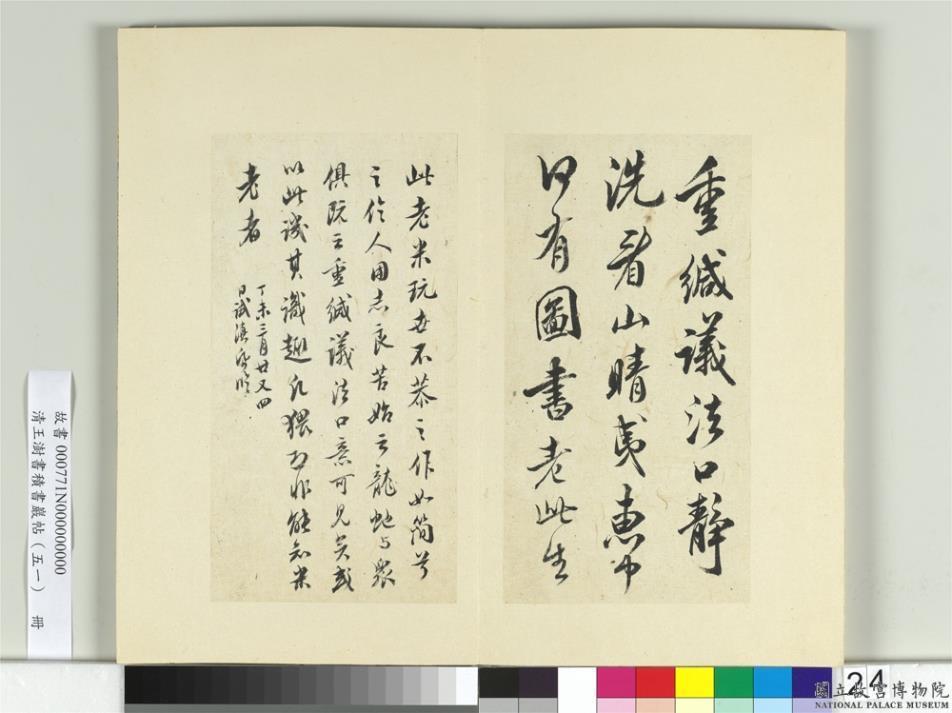 重緘議法口靜
洗看山晴夷惠中
何有圖書老此生
此老米玩世不恭之作如簡兮
之伶人用志良苦始云龍蛇与眾
俱既云重緘議法口意可見矣或
以此議其識趣凡猥知米
老者
丁未三月廿又四
日試
故書 000771N000000000
清王澍書積書巖帖(五一) 冊
24
國立故宮博物院
NATIONAL PALACE MUSEUM